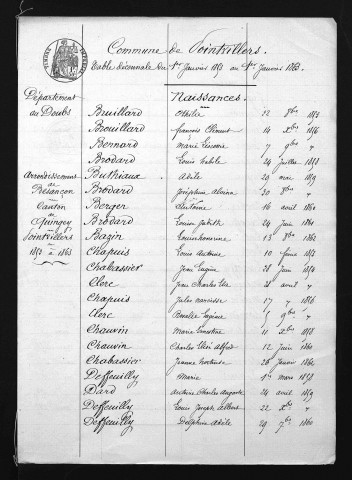 Commune de Pointvillers.
Table décennale du 1er Janvier 1853 au 1er Janvier 1863.
Département
du Doubs
Arrondissement
de
Besançon
Canton
de
Quingey
Pointvillers
1853 à 1863
Naissances.
Bruillard Othilie 22 Xbre 1853
Brouillard françois Clément 14 Xbre 1856
Bennard Marie 7 9bre "
Brodard Louis 24 Juillet 1858
Buthiaux Adèle 20 mai 1859
Brodard Joséphine 30 Xbre "
Berger Antoine 16 avril 1860
Brodard Louise Judith 24 Juin 1861
Bazin 13 1862
Chapuis Louis Antoine 10 1853
Chabassier Jean Eugène 28 Juin 1854
Clerc Jean Charles 28 avril "
Chapuis Jules narcisse 17 " 1856
Clerc Rosalie 5 9bre "
Chauvin Marie 11 Xbre 1858
Chauvin Charles Elie Alfred 12 Juin 1860
Chabassier Jeanne 26 Janvier 1862
Deffeuilly Marie 1er mars 1858
Dard Antoine Charles Auguste 24 avril 1859
Deffeuilly Louis Joseph Albert 22 Xbre "
Deffeuilly Delphine Adèle 29 7bre 1860